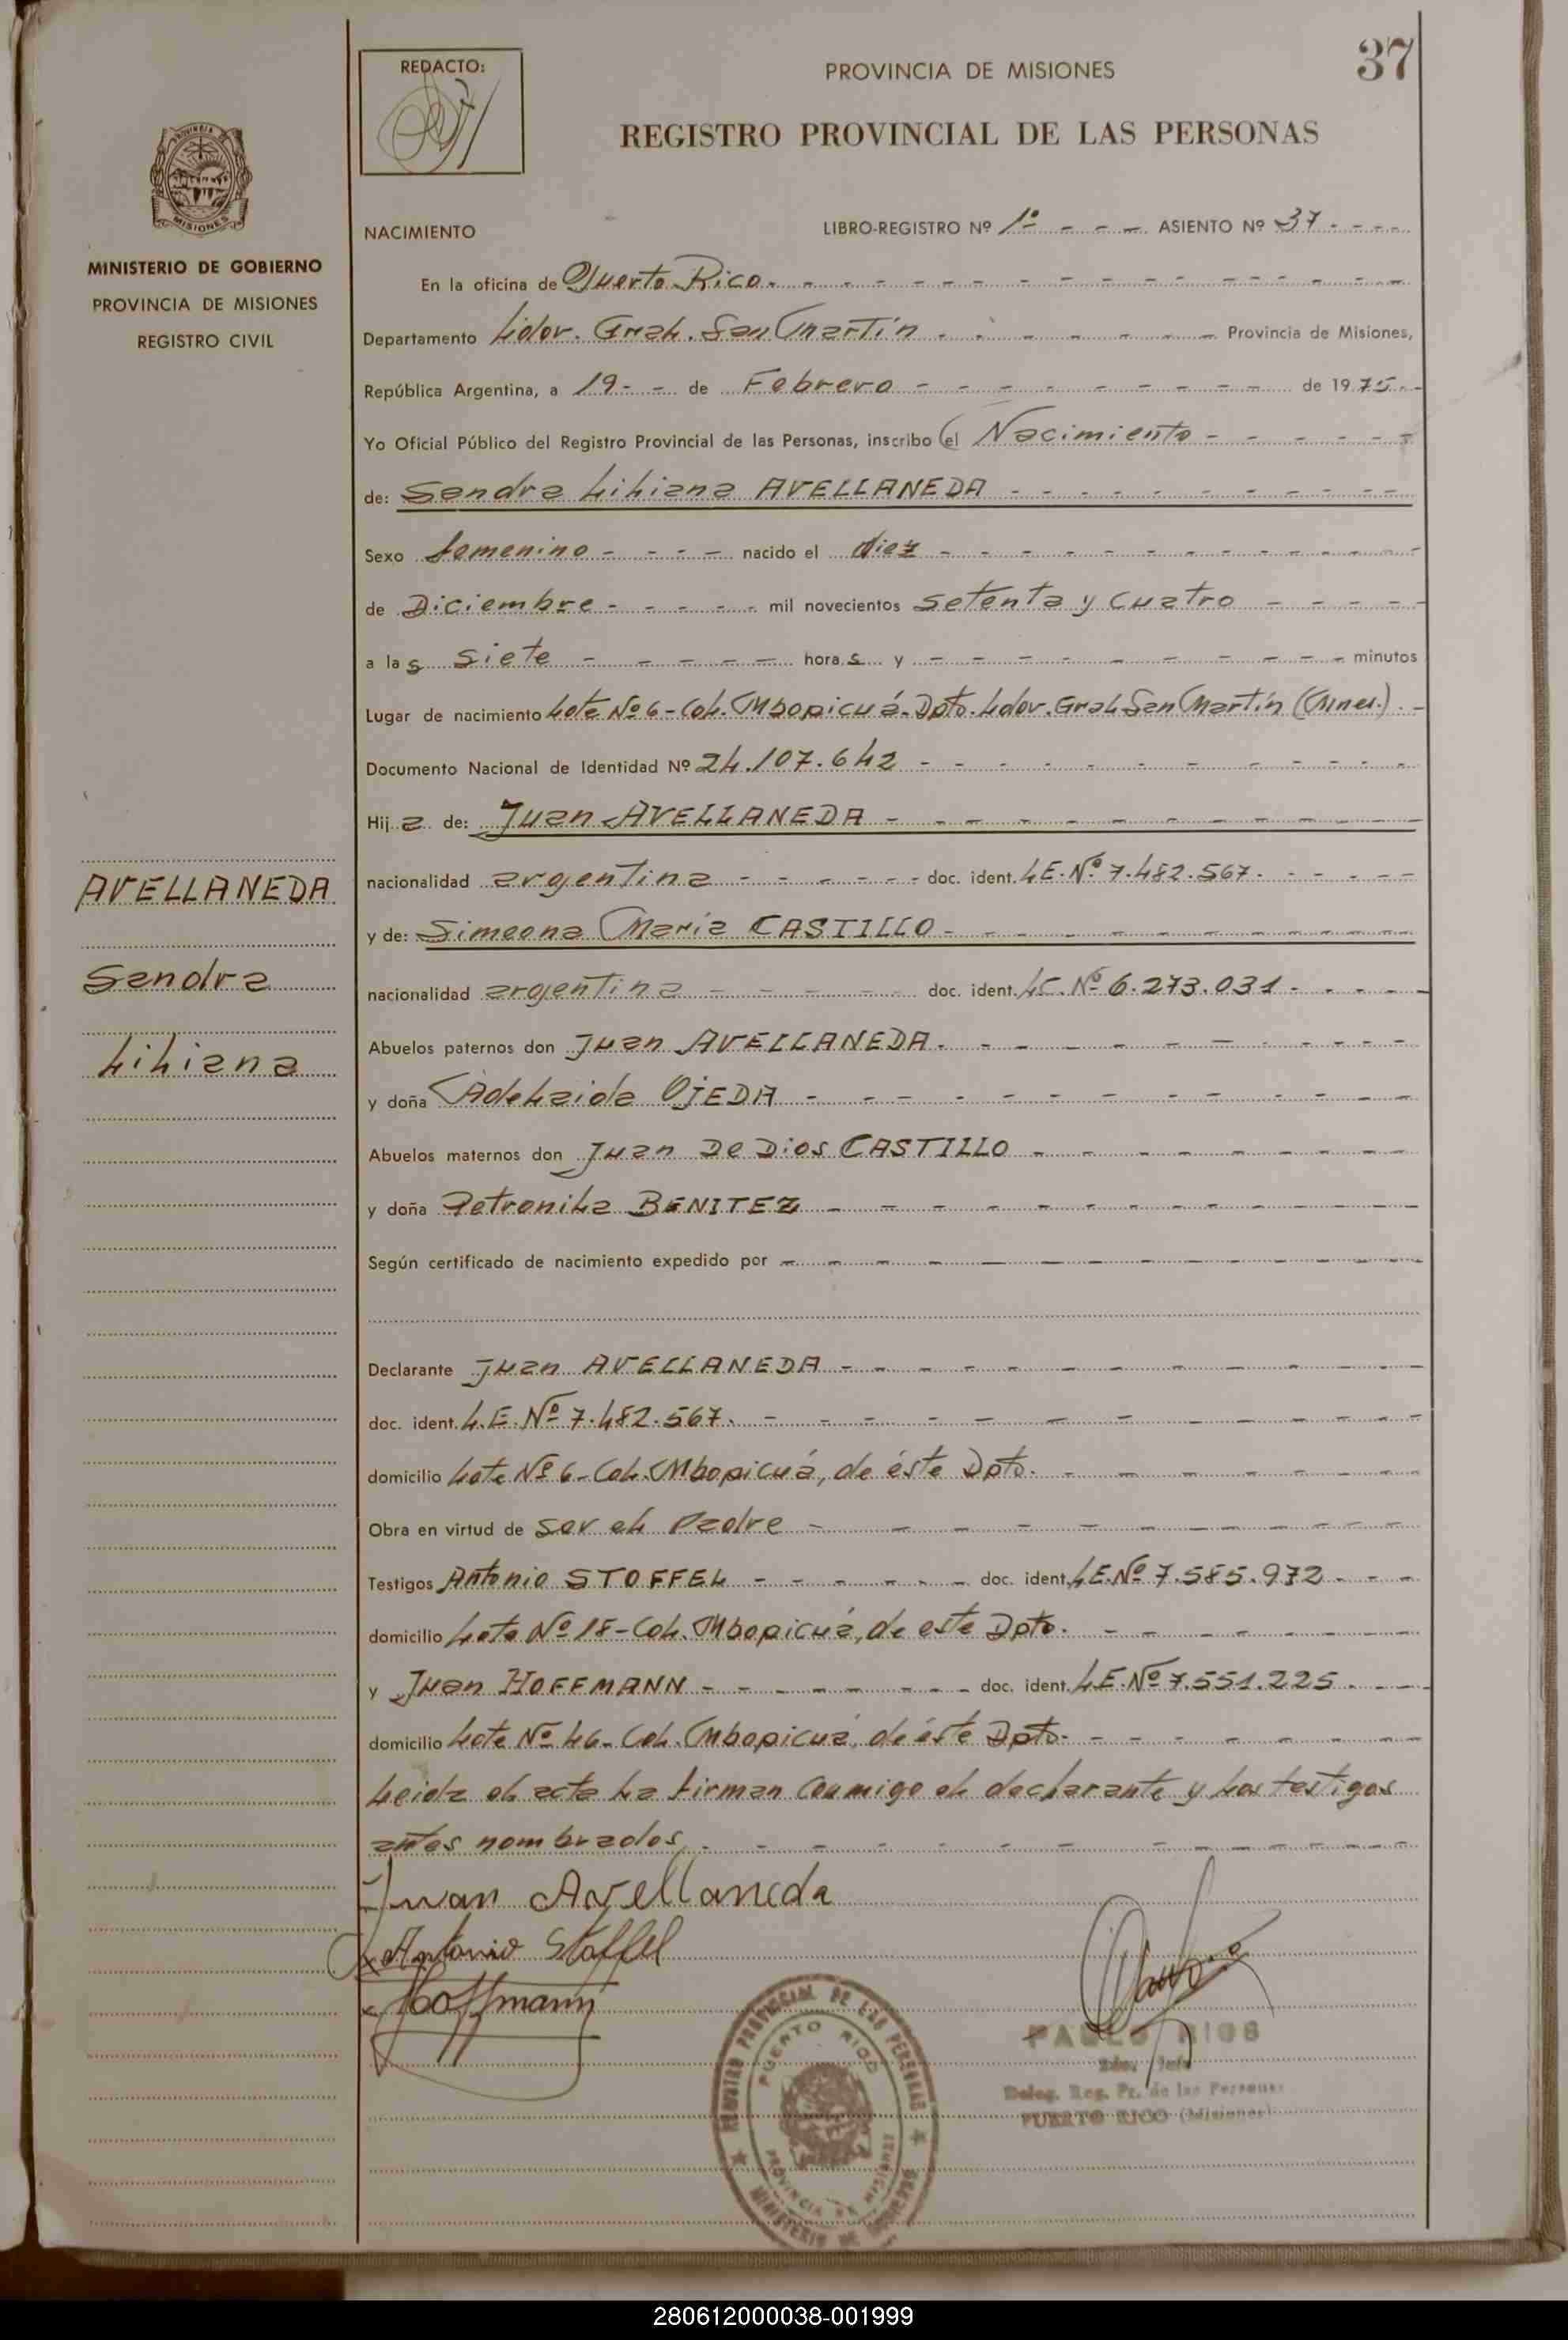 37
REDACTO:
PROVINCIA DE MISIONES
REGISTRO PROVINCIAL DE LAS PERSONAS
PROVINCIA DE
MISIONES
MINISTERIO DE GOBIERNO
PROVINCIA DE MISIONES
REGISTRO CIVIL
NACIMIENTO LIBRO-REGISTRO Nº 1º - - - ASIENTO Nº 37 - - - -
En la oficina de Puerto Rico. - - - -
Departamento Lidor. Gral. San Martín - - - - Provincia de Misiones,
República Argentina, a 19 - - de Febrero - - - - de 1975. -
Yo Oficial Público del Registro Provincial de las Personas, inscribo el Nacimiento - - - -
de: Sandra Liliana AVELLANEDA - - - -
Sexo femenino - - - - nacido el diez - - - -
de Diciembre - - - - mil novecientos setenta y cuatro - - - -
a las siete - - - - horas y - - - - minutos
Lugar de nacimiento Lote Nº 6 - Col. Mbopicuá - Dpto. Ldor. Gral San Martín (Mnes.). -
Documento Nacional de Identidad Nº 24.107.642 - - - -
Hija de: Juan AVELLANEDA - - - -
nacionalidad argentina - - - - doc. ident. LE. Nº 7.482.567. - - - -
y de: Simeona María CASTILLO - - - -
nacionalidad argentina - - - - doc. ident. LC. Nº 6.273.031 - - - -
Abuelos paternos don Juan AVELLANEDA. - - - -
y doña Adelaida OJEDA - - - -
Abuelos maternos don Juan De Dios CASTILLO - - - -
y doña Petronila BENITEZ - - - -
Según certificado de nacimiento expedido por - - - -
Declarante Juan AVELLANEDA - - - -
doc. ident. L.E. Nº 7.482.567. - - - -
domicilio Lote Nº 6 - Col. Mbopicuá, de éste Dpto. - - - -
Obra en virtud de ser el Padre - - - -
Testigos Antonio STOFFEL - - - - doc. ident. LE. Nº 7.585.972 - - -
domicilio Lote Nº 18 - Col. Mbopicuá, de este Dpto. - - - -
y Juan HOFFMANN - - - - doc. ident. LE. Nº 7.551.225. - - -
domicilio Lote Nº 46 - Col. Mbopicuá, de éste Dpto. - - - -
Leida el acta la firman conmigo el declarante y los testigos
antes nombrados. - - - -
AVELLANEDA
Sandra
Liliana
Juan Avellaneda
Antonio Stoffel
Hoffmann
REGISTRO PROVINCIAL DE LAS PERSONAS
PUERTO RICO
PROVINCIA DE MISIONES
MINISTERIO DE GOBIERNO
PABLO RIOS
Deleg. Reg. Pr. de las Personas
PUERTO RICO (Misiones)
280612000038-001999